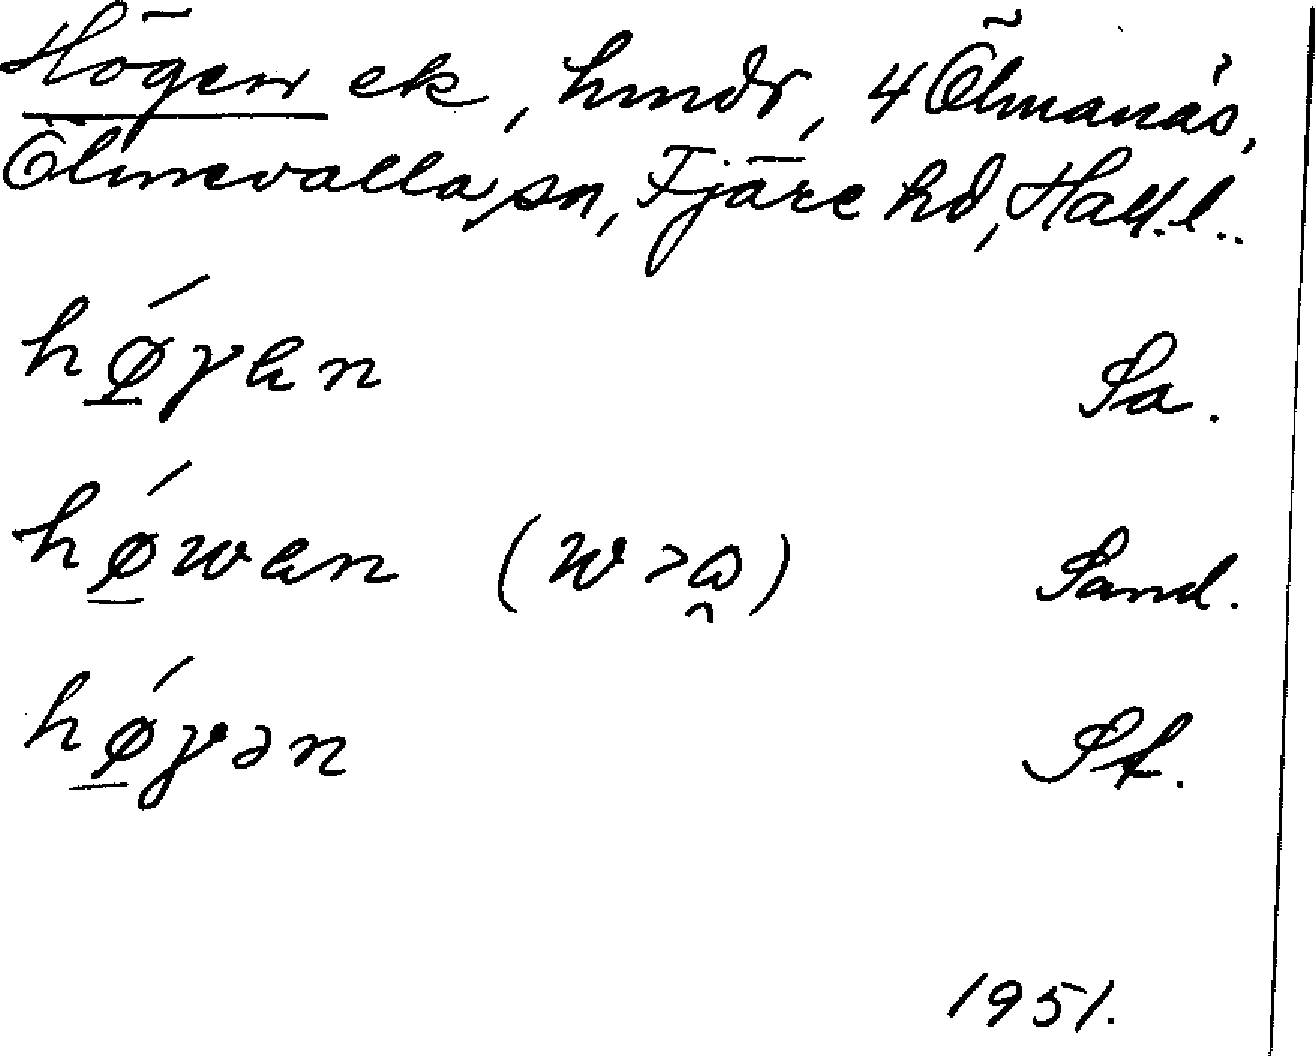 Högen ek, hmdr, 4 Ölmanäs,
Ölmevalla sn, Fjäre hd, Hall. l..
hǿ̱γen Sa.
hǿ̱wen (w>ω̯) Sand.
hǿ̱γən St.
1951.